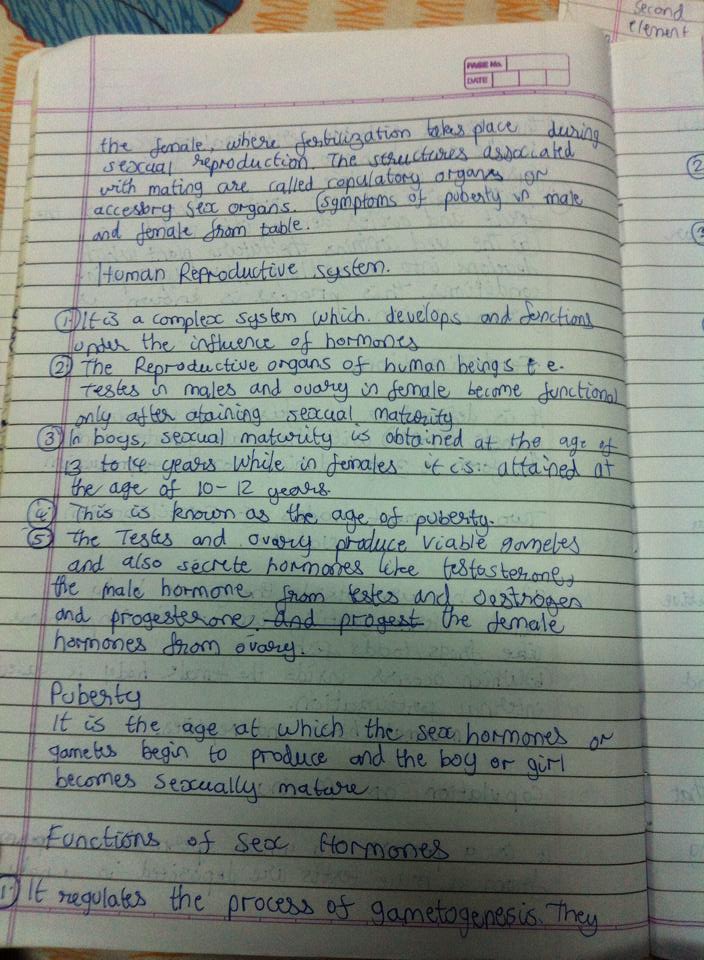 second
element
PAGE No.
DATE
the female, where fertilization takes place during
sexual reproduction. The structures associated
with mating are called copulatory organs or
accessory sex organs. (symptoms of puberty in male
and female from table.
Human Reproductive system.
(1) It is a complex system which develops and functions
under the influence of hormones
(2) The Reproductive organs of human beings i.e.
testes in males and ovary in female become functional
only after ataining sexual maturity
(3) In boys, sexual maturity is obtained at the age of
13 to 14 years while in females it is attained at
the age of 10-12 years.
(4) This is known as the age of puberty.
(5) The Testes and ovary produce viable gametes
and also secrete hormones like testasterone,
the male hormone from testes and oestrogen
and progesterone. And progest the female
hormones from ovary.
Puberty
It is the age at which the sex hormones or
gametes begin to produce and the boy or girl
becomes sexually mature
Functions of Sex Hormones
(1) It regulates the process of gametogenesis. They
(2)